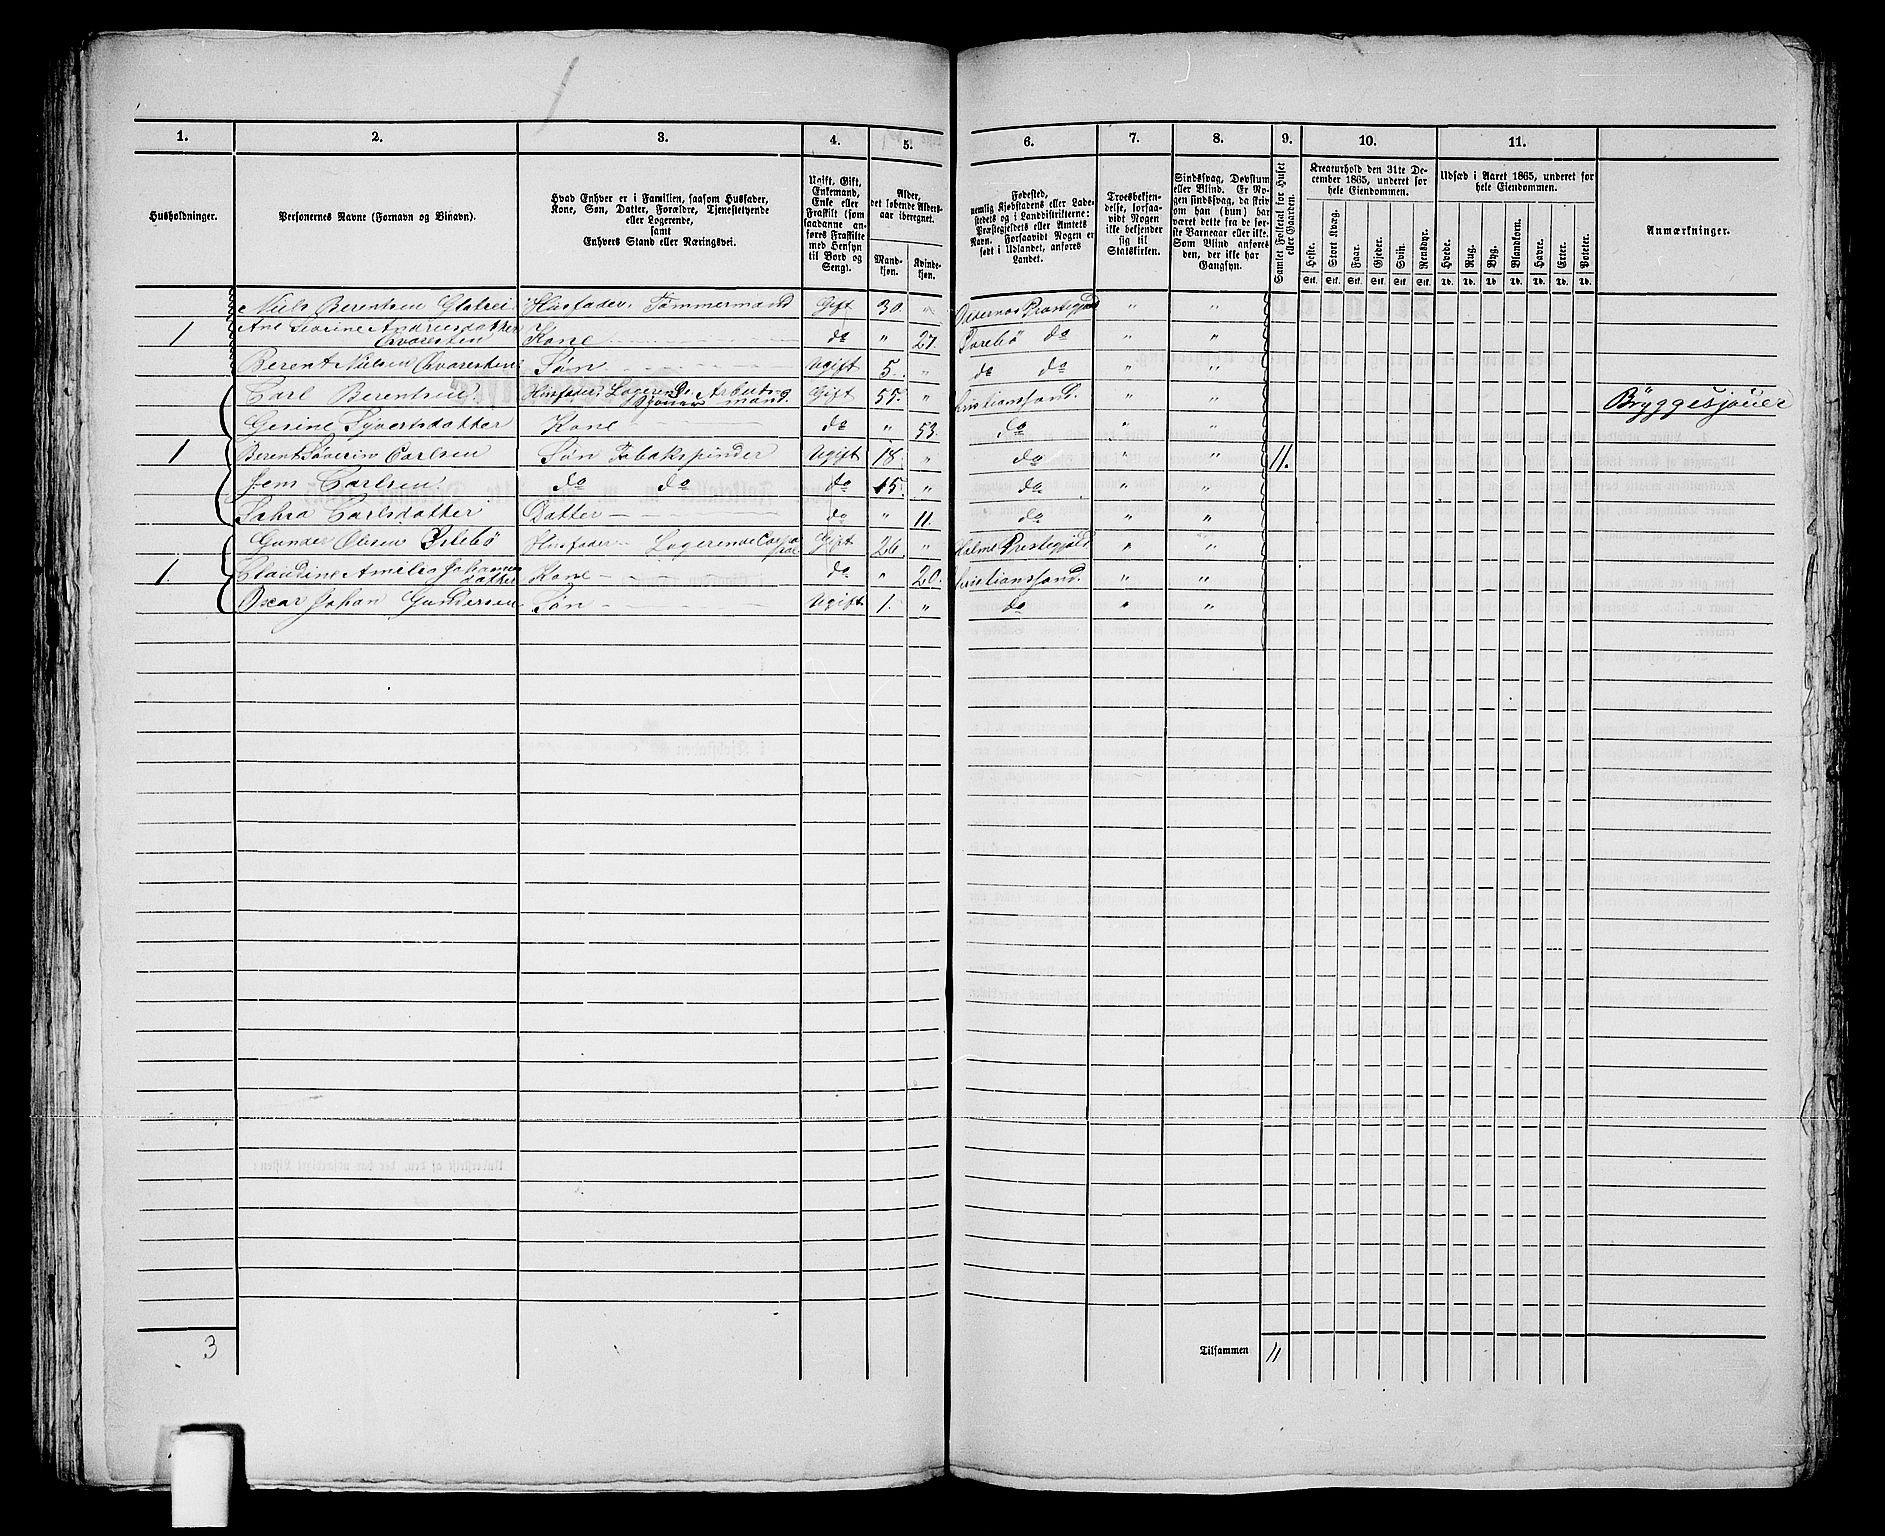 1. 2. 3. 4. 5. 6. 7. 8. 9. 10. 11.
Husholdninger.
Personernes Navne (Fornavn og Tilnavn).
Hvad Enhver er i Familien, saasom Husfader,
Kone, Søn, Datter, Forældre, Tjenestetyende
eller Logerende,
samt
Enhvers Stand eller Næringsvei.
Ugift, Gift,
Enkemand,
Enke eller
Fraskilt (som
saadanne an-
føres Fraskilte
med Hensyn
til Bord og
Seng).
Alder,
det løbende Alders-
aar iberegnet.
Mand-
kjøn.
Kvinde-
kjøn.
Fødested,
nemlig Kjøbstadens eller Lade-
stedets og i Landdistrikterne:
Præstegjeldets eller Amtets
Navn. Forsaavidt Nogen er
født i Udlandet, anføres
Landet.
Troesbekjen-
delse, forsaa-
vidt Nogen
ikke bekjender
sig til
Statskirken.
Sindssvag, Døvstum
eller Blind. Er No-
gen sindssvag, da skriv
om han (hun) har
været dette fra de før-
ste Barneaar eller ikke.
Som Blind anføres
den, der ikke har
Gangsyn.
Samlet Folketal for Huset
eller Gaarden.
Kreaturhold den 31te De-
cember 1865, underet for
hele Eiendommen.
Heste. Stort Kvæg. Faar. Gjeder. Svin. Rensdyr.
Stk. Stk. Stk. Stk. Stk. Stk.
Udsæd i Aaret 1865, underet for
hele Eiendommen.
Hvede. Rug. Byg. Blandkorn. Havre. Erter. Poteter.
Td. Td. Td. Td. Td. Td. Td.
Anmærkninger.
Niels Berentsen Husfader Tømmermand Gift 30. " Oddernes Præstegjeld " "
1 Ane Andreasdatter Kone da " 27. da " "
Berent Nielsen Søn Ugift 5. " da da " "
Carl Berentsen Husfader Logerende Arbeids- Gift 55. " Christianssand. " " Bryggesjouer
mand
Gesine Syvertsdatter Kone da " 53. da " "
1 Berent Søverin Carlsen Søn Tobakspinder Ugift 18. " da " " 11.
Jens Carlsen da da da 15. " da " "
Carlsdatter Datter da " 11. da " "
Gunder Olsen Husfader Logerende Gift 26 " Holme Prestegjæld " "
1. Claudine Amelie Johannes
datter Kone da " 20. Christianssand. " "
Oscar Johan Gundersen Søn Ugift 1. " da " "
3
Tilsammen 11